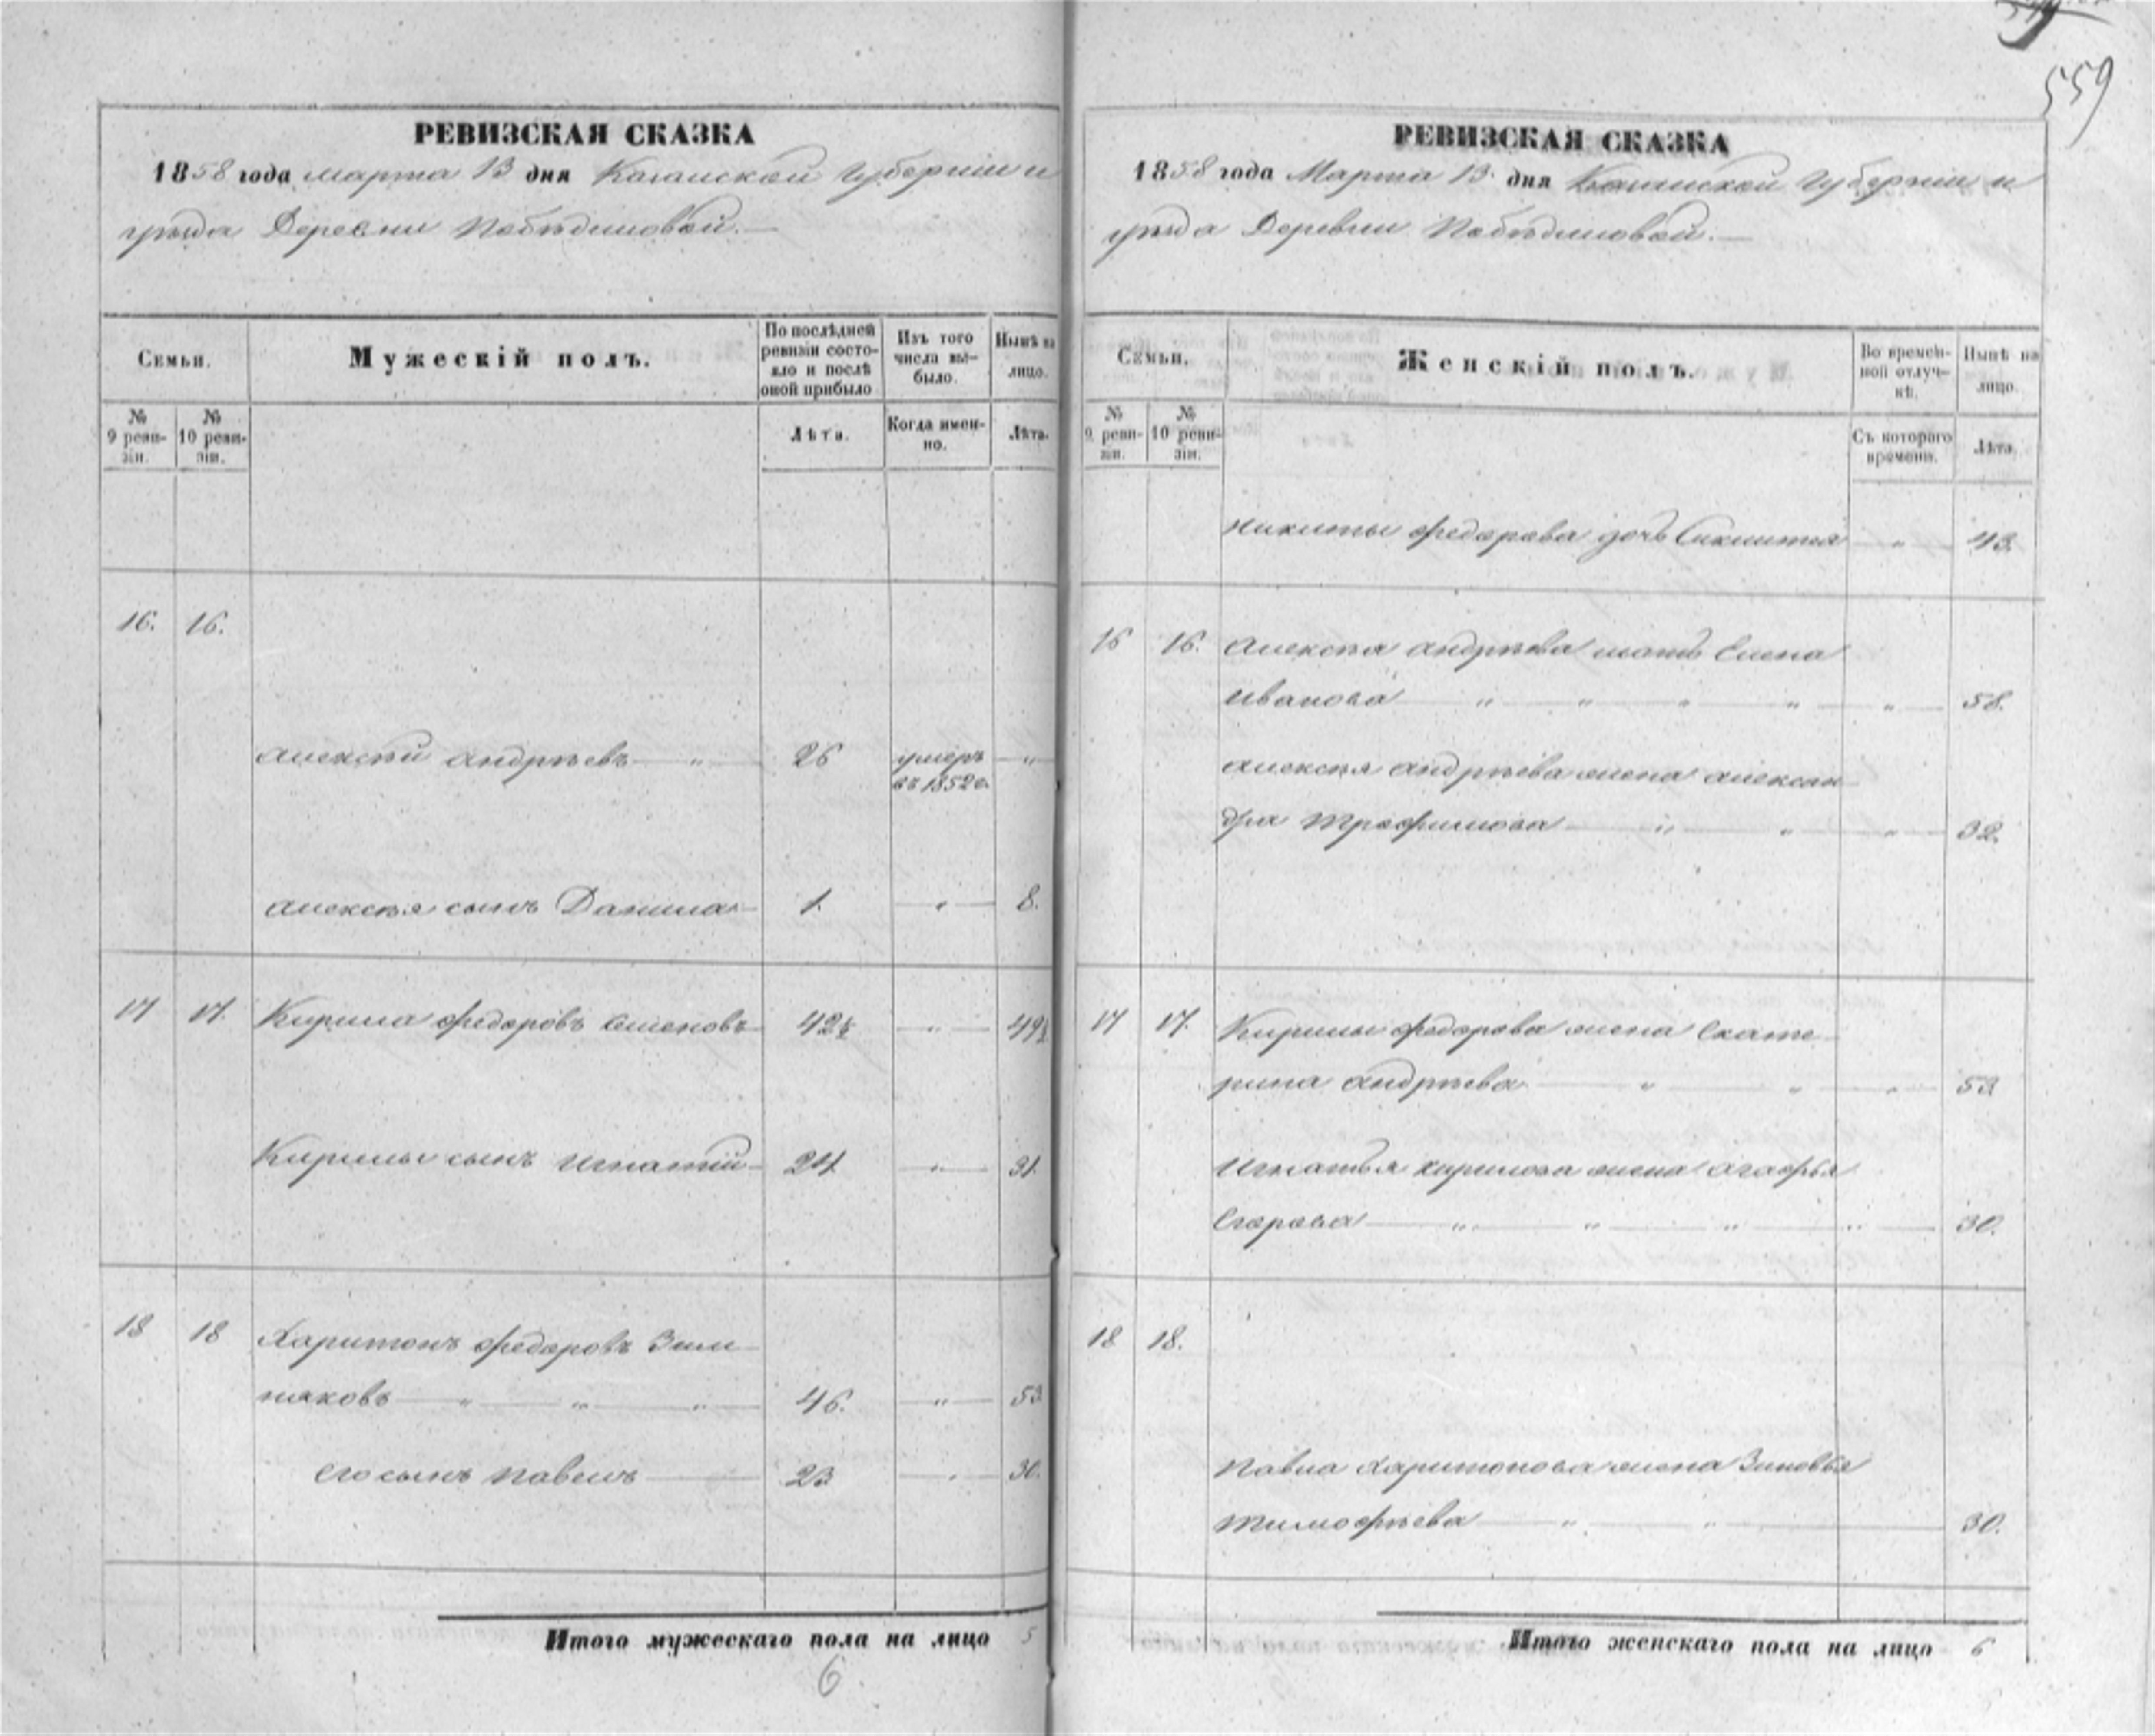 559
РЕВИЗСКАЯ СКАЗКА
1858 года марта 13 дня Казанской Губерніи и
уѣзда Деревни Побѣдиловой.
Семьи.
Мужескій полъ.
По послѣдней
ревизіи состо-
яло и послѣ
оной прибыло
Изъ того
числа вы-
было.
Нынѣ на
лицо.
№
9 реви-
зіи.
№
10 реви-
зіи.
Лѣта.
Когда имен-
но.
Лѣта.
16. 16.
Алексѣй Андрѣевъ — " — 26 умеръ — "
въ 1852 г.
Алексѣя сынъ Данила — 1. — " — 8.
17 17. Кирила Федоровъ 42½ — " — 49½
Кирилы сынъ Игнатій — 24 — " — 31.
18 18 Харитонъ Федоровъ Зим
няковъ — " — " — " — 46. — " — 53.
его сынъ Павелъ — 23 — " — 30.
Итого мужескаго пола на лицо 5
6
РЕВИЗСКАЯ СКАЗКА
1858 года Марта 13 дня Казанской Губерніи и
уѣзда Деревни Побѣдиловой.
Семьи.
Женскій полъ.
Во времен-
ной отлуч-
кѣ.
Нынѣ на
лицо.
№
9 реви-
зіи.
№
10 реви-
зіи.
Съ котораго
времени.
Лѣта.
Никиты Федорова дочь — " — 43.
16 16. Алексѣя Андрѣева мать Елена
Иванова — " — " — " — " — " — 58.
Алексѣя Андрѣева жена Алексан
дра Трофимова — " — " — " — 32.
17 17. Кирилы Федорова жена Екате
рина Андрѣева — " — " — " — 53
Игнатья Кирилова жена Агафья
Егорова — " — " — " — " — 30.
18 18.
Павла Харитонова жена Зиновья
Тимофѣева — " — " — 30.
Итого женскаго пола на лицо 6